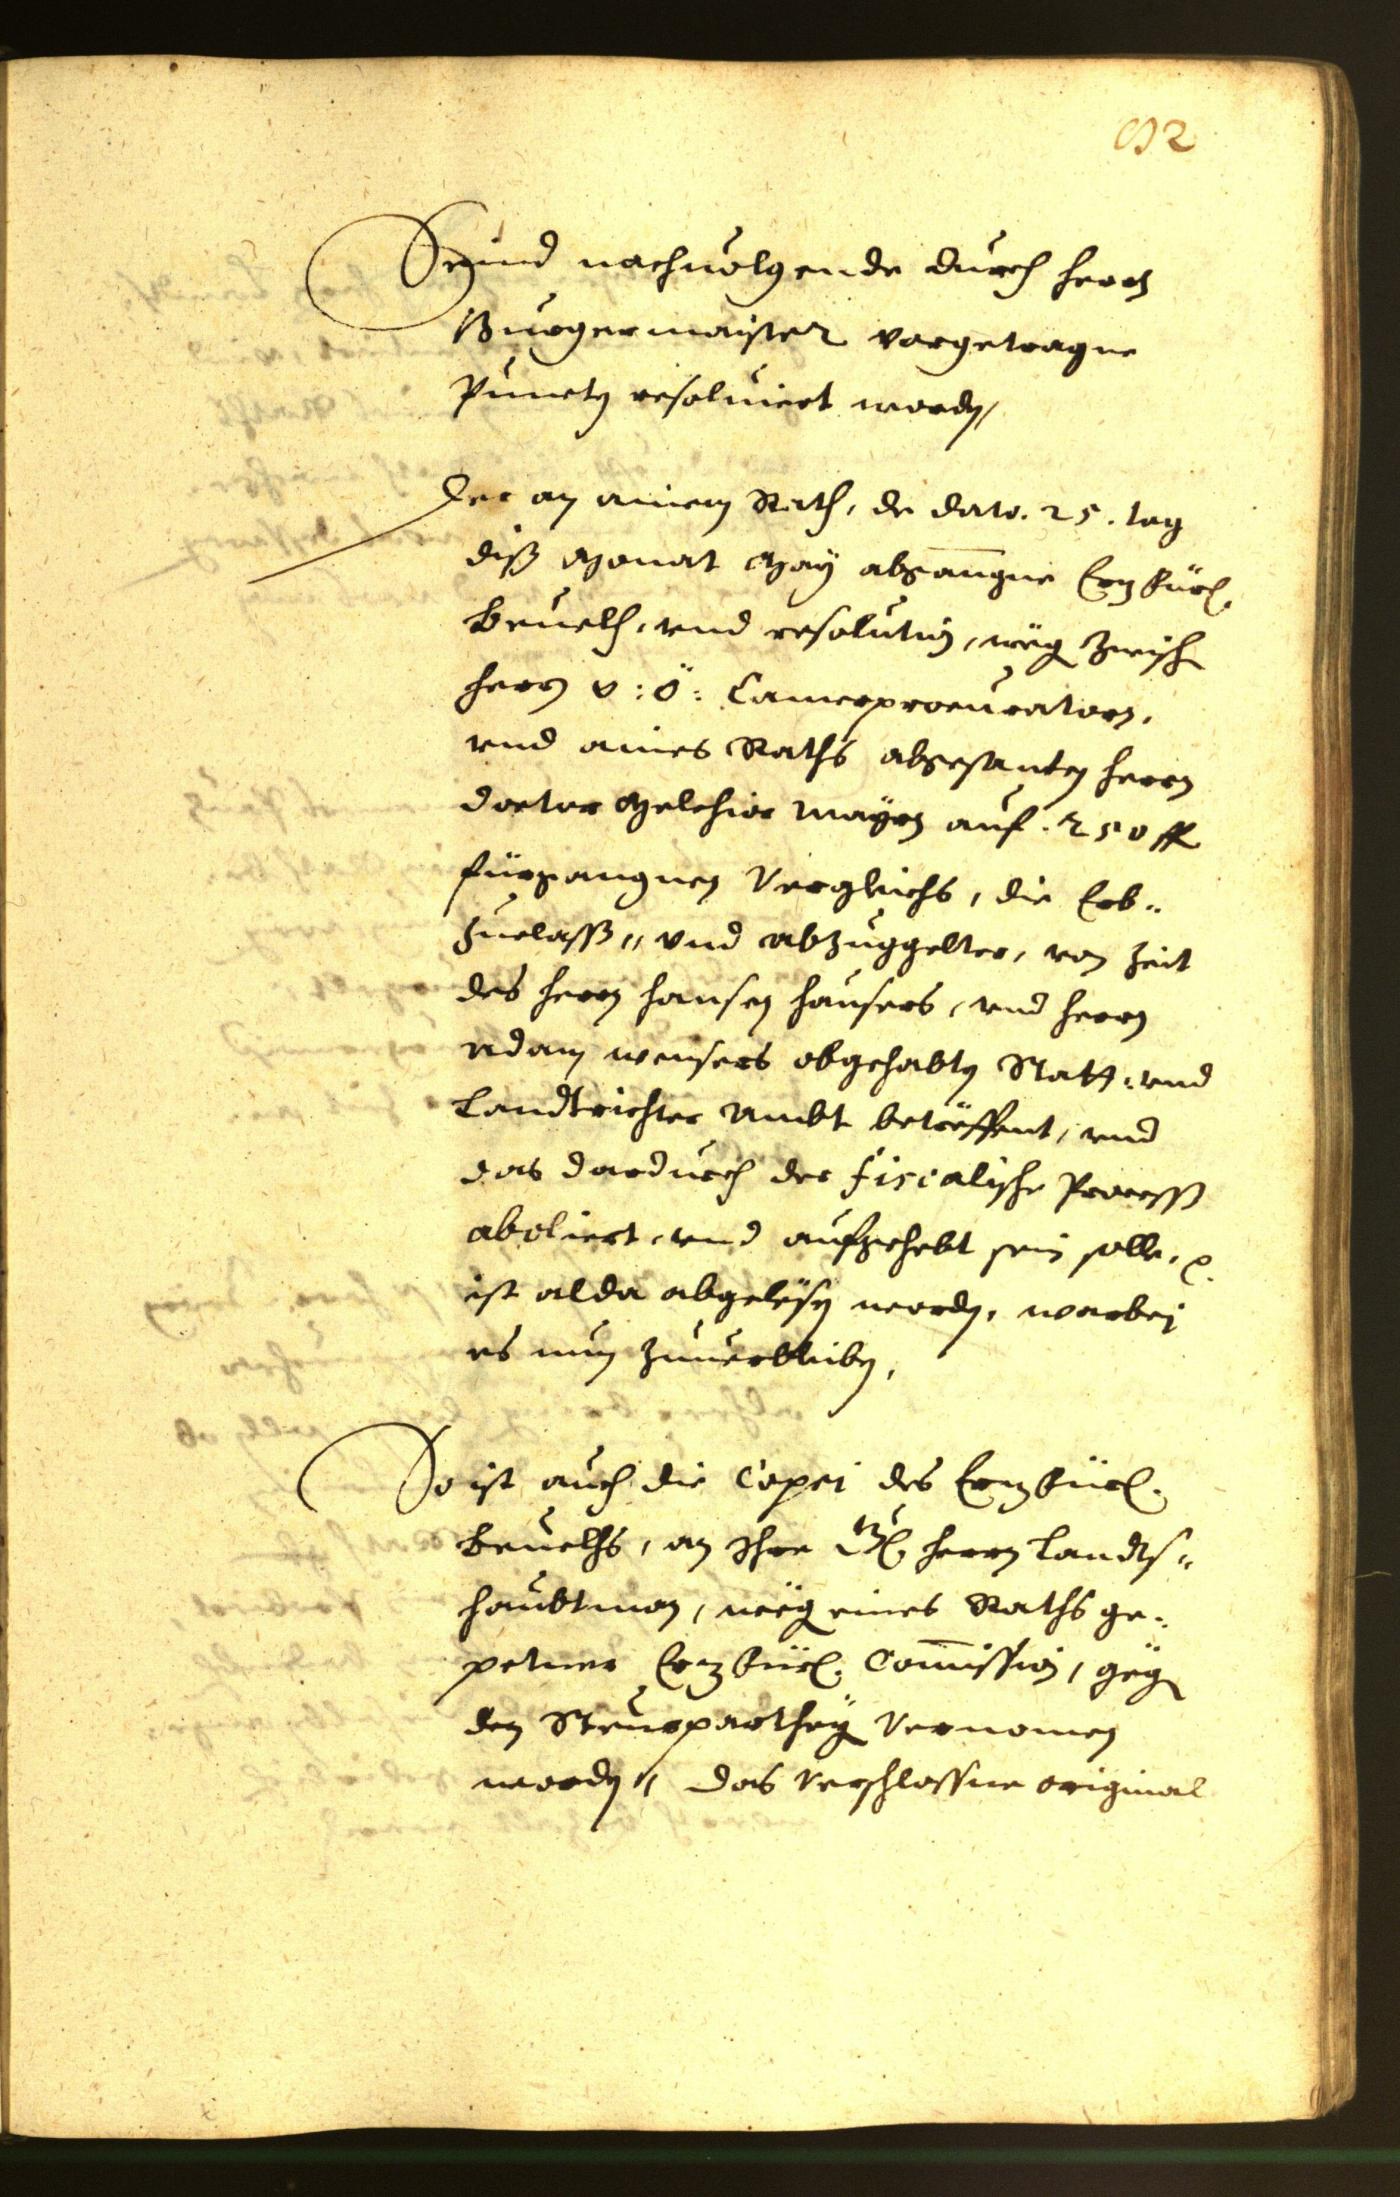 92
Seind nachuolgende durch herrn
Burgermaister vorgetragne
Puncten resoluiert worden,
Der an ainem Rath, de dato. 25. tag
diß Monat May abgangne Erzfürl.
Beuelh, vnd resolution, weg zwisch
herrn O: Ö: Camerprocuratorn,
vnd aines Raths abgesanten herrn
doctor Melchior Mayrn auf. 250 fl
fürgangnen Verglichs, die Erb-
zuelaß- vnd abzuggelter, von Zeit
des herrn Hansen Hausers, vnd herrn
Adam Wensers obgehabten Statt- vnd
Landtrichter Ambt betreffent, vnd
das dardurch der fiscalische Process
aboliert, vnd aufgehebt sein solle, p.
ist alda abgelesen worden, warbej
es nun zuuerbleiben.
So ist auch die Copej des Erzfürl.
Beuelhs, an Ihre Gl. herrn Landts-
haubtman, weg eines Raths ge-
petner Erzfürl. Commission, geg
den Steurparthey Vernomen
worden, das verschlossne original